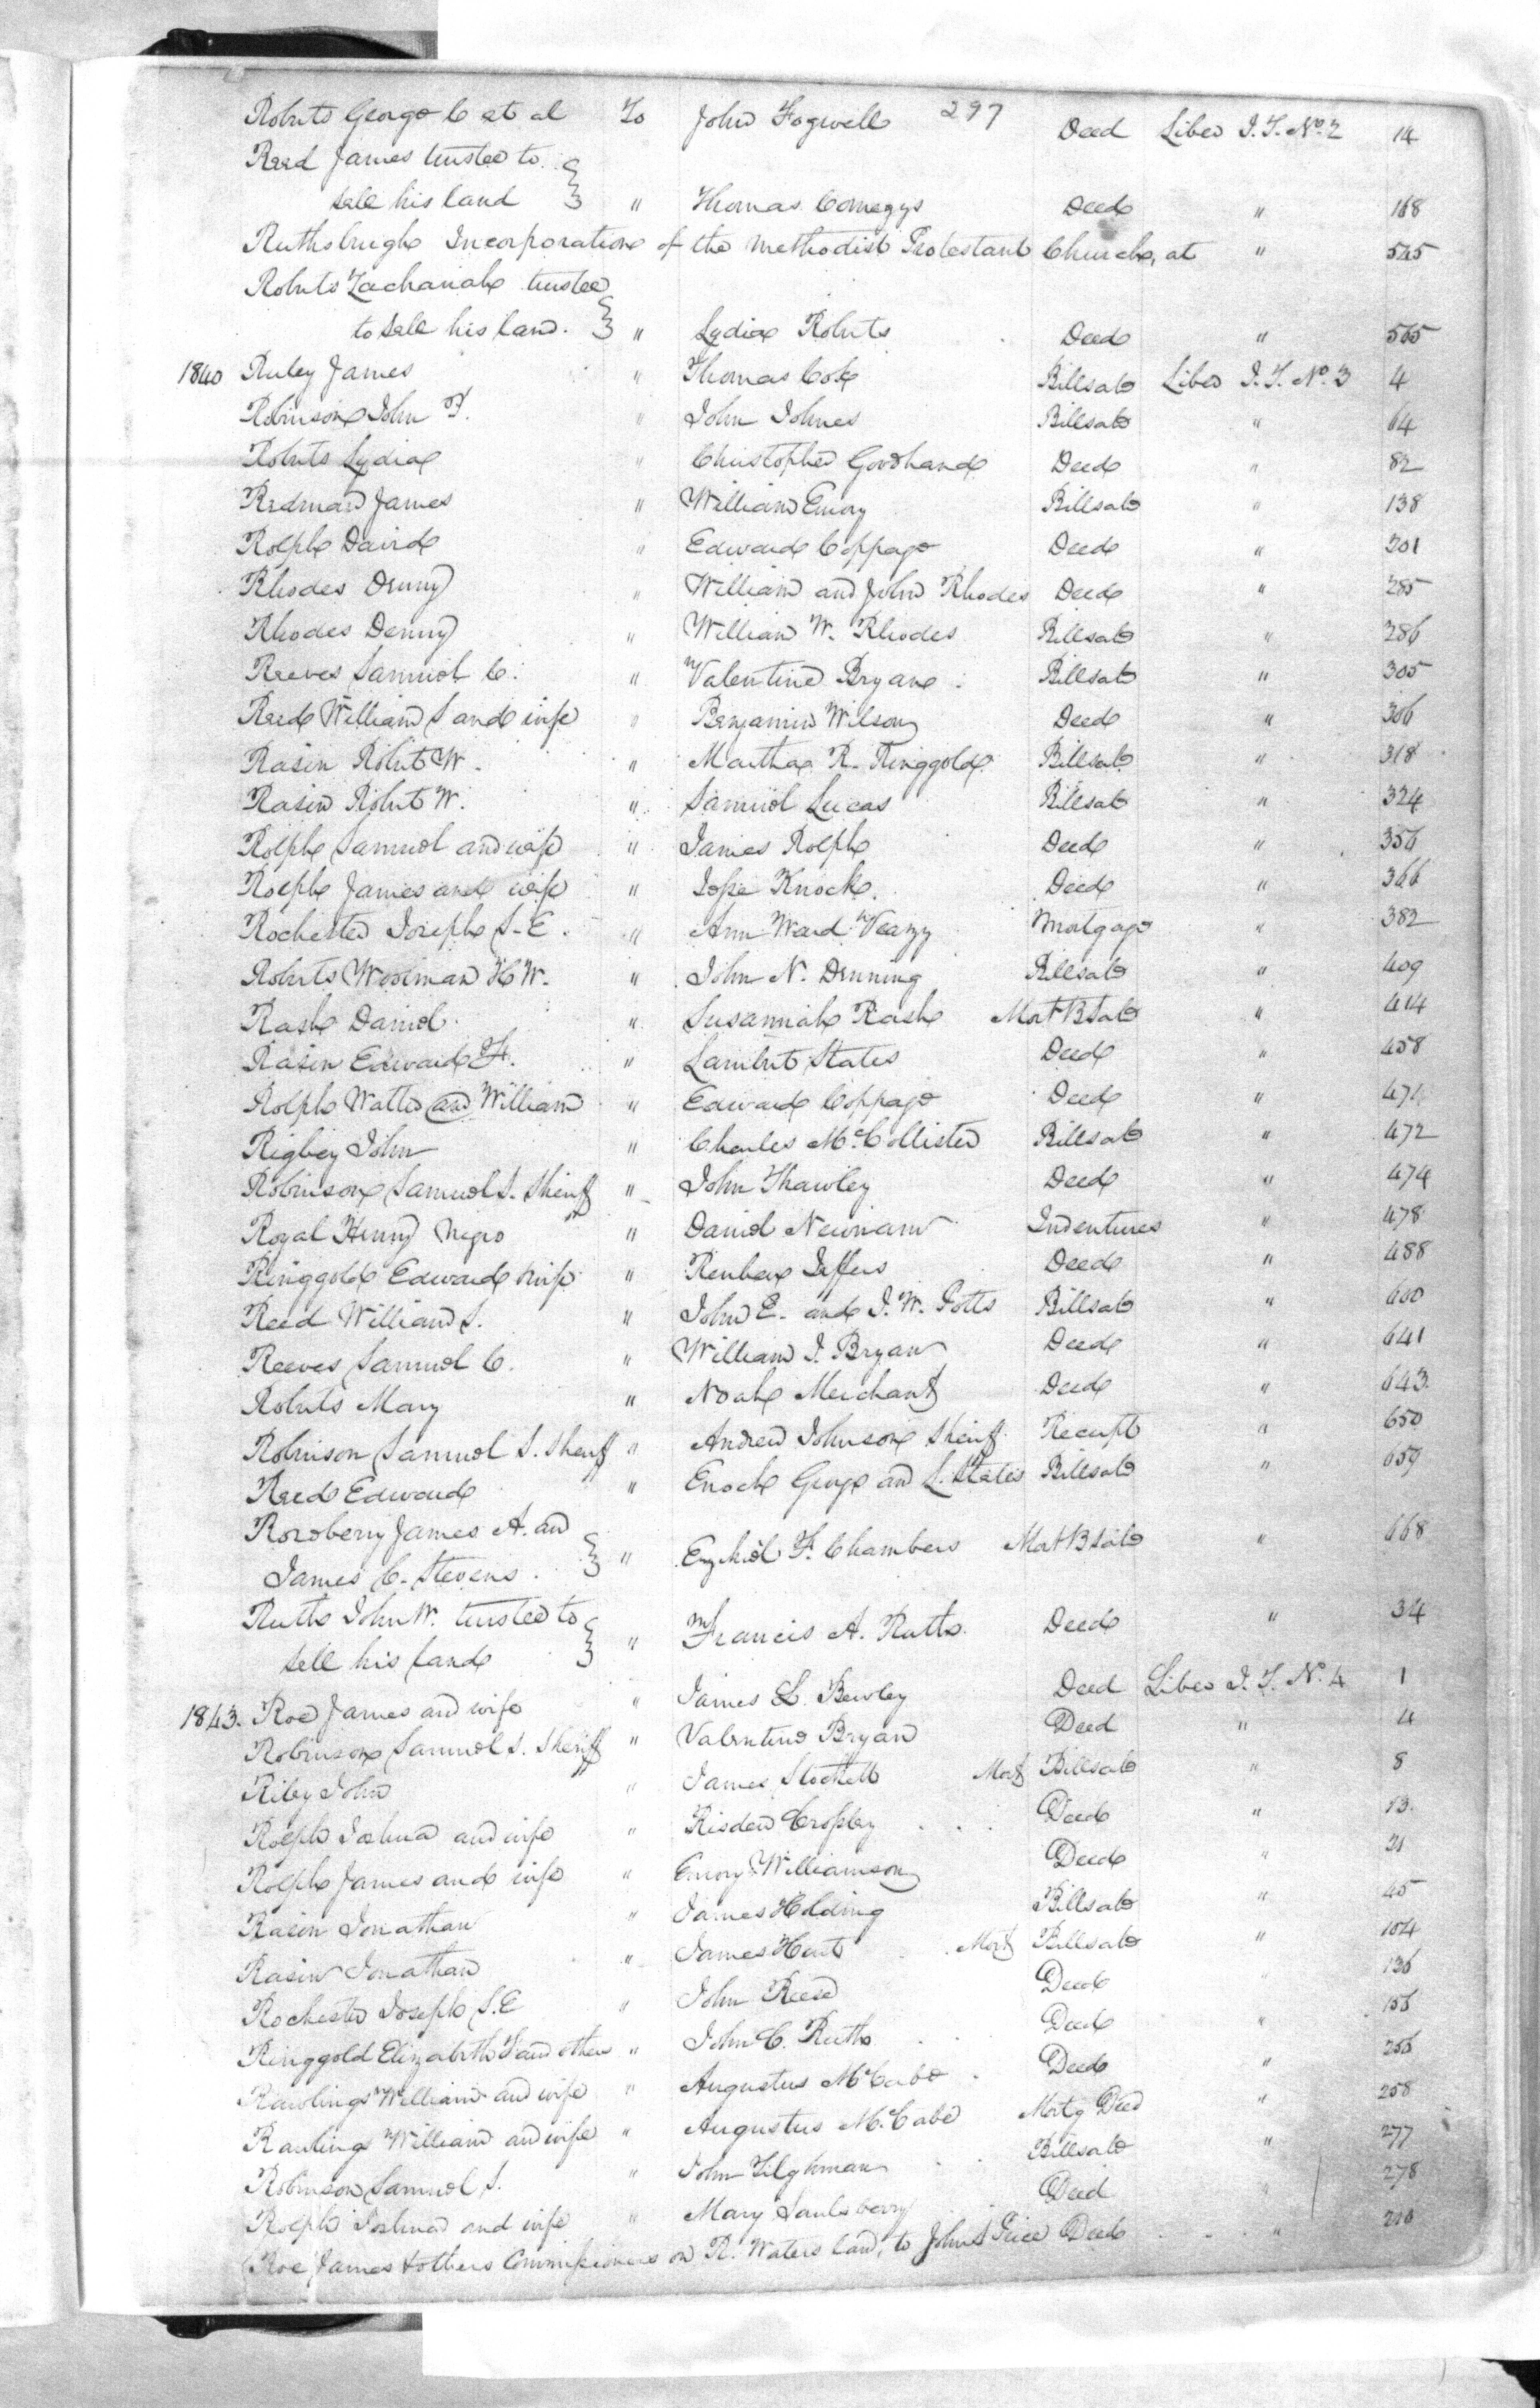 297
Roberts George C et al To John Fogwell Deed Liber J.T. No. 2 14
Reed James trustee to
sell his land " Thomas Comegys Deed " 168
Ruthsburgh Incorporation of the Methodist Protestant Church, at " 545
Roberts Zachariah trustee
to sell his land. " Lydia Roberts Deed " 565
1840 Ruley James " Thomas Cox Billsale Liber J.T. No. 3 4
Robinson John F. " John Johnes Billsale " 64
Roberts Lydia " Christopher Goodhand Deed " 82
Redman James " William Emory Billsale " 138
Rolph David " Edward Coppage Deed " 201
Rhodes Denny " William and John Rhodes Deed " 285
Rhodes Denny " William W. Rhodes Billsale " 286
Reeves Samuel C. " Valentine Bryan Billsale " 305
Reed William S and wife " Benjamin Wilson Deed " 306
Rasin Robert W. " Martha R. Ringgold Billsale " 318
Rasin Robert W. " Samuel Lucas Billsale " 324
Rolph Samuel and wife " James Rolph Deed " 356
Rolph James and wife " Jesse Knock Deed " 366
Rochester Joseph S. E. " Ann Ward Veazy Mortgage " 382
Roberts Woolman H W. " John N. Denning Billsale " 409
Rash Daniel " Susannah Rash Mort B Sale " 414
Rasin Edward F. " Lambert States Deed " 458
Rolph Walter and William " Edward Coppage Deed "
Rigbey John " Charles McCollister Billsale " 472
Robinson Samuel S. Sheriff " John Thawley Deed " 474
Royal Henry Negro " Daniel Newnam Indentures " 478
Ringgold Edward & wife " Reuben Jeffers Deed " 488
Reed William S. " John E. and J. W. Potts Billsale " 600
Reeves Samuel C. " William J. Bryan Deed " 641
Roberts Mary " Noah Merchant Deed " 643
Robinson Samuel S. Sheriff " Andrew Johnson Sheriff Receipt " 650
Reed Edward " Enoch George and L. States Billsale " 659
Roseberry James A. and
James C. Stevens. " Ezekiel F. Chambers Mort B Sale " 668
Ruth John W. trustee to
sell his land " Francis A. Ruth Deed " 34
1843. Roe James and wife " James L. Bewley Deed Liber J.T. N. 4 1
Robinson Samuel S. Sheriff " Valentine Bryan Deed " 4
Riley John " James Stockett Mort Billsale " 8
Rolph Joshua and wife " Risden Cropley Deed " 13
Rolph James and wife " Emory Williamson Deed " 21
Rasin Jonathan " James Holding Billsale " 45
Rasin Jonathan " James Hart Mort Billsale " 104
Rochester Joseph S. E " John Reese Deed " 136
Ringgold Elizabeth S and others " John C. Ruth Deed " 156
Rawlings William and wife " Augustus McCabe Deed " 256
Rawlings William and wife " Augustus McCabe Mortg Deed " 258
Robinson Samuel S. " John Tilghman Billsale " 277
Rolph Joshua and wife " Mary Saulsberry Deed " 278
Roe James & others Commissioners on R. Waters land, to John Price Deed "